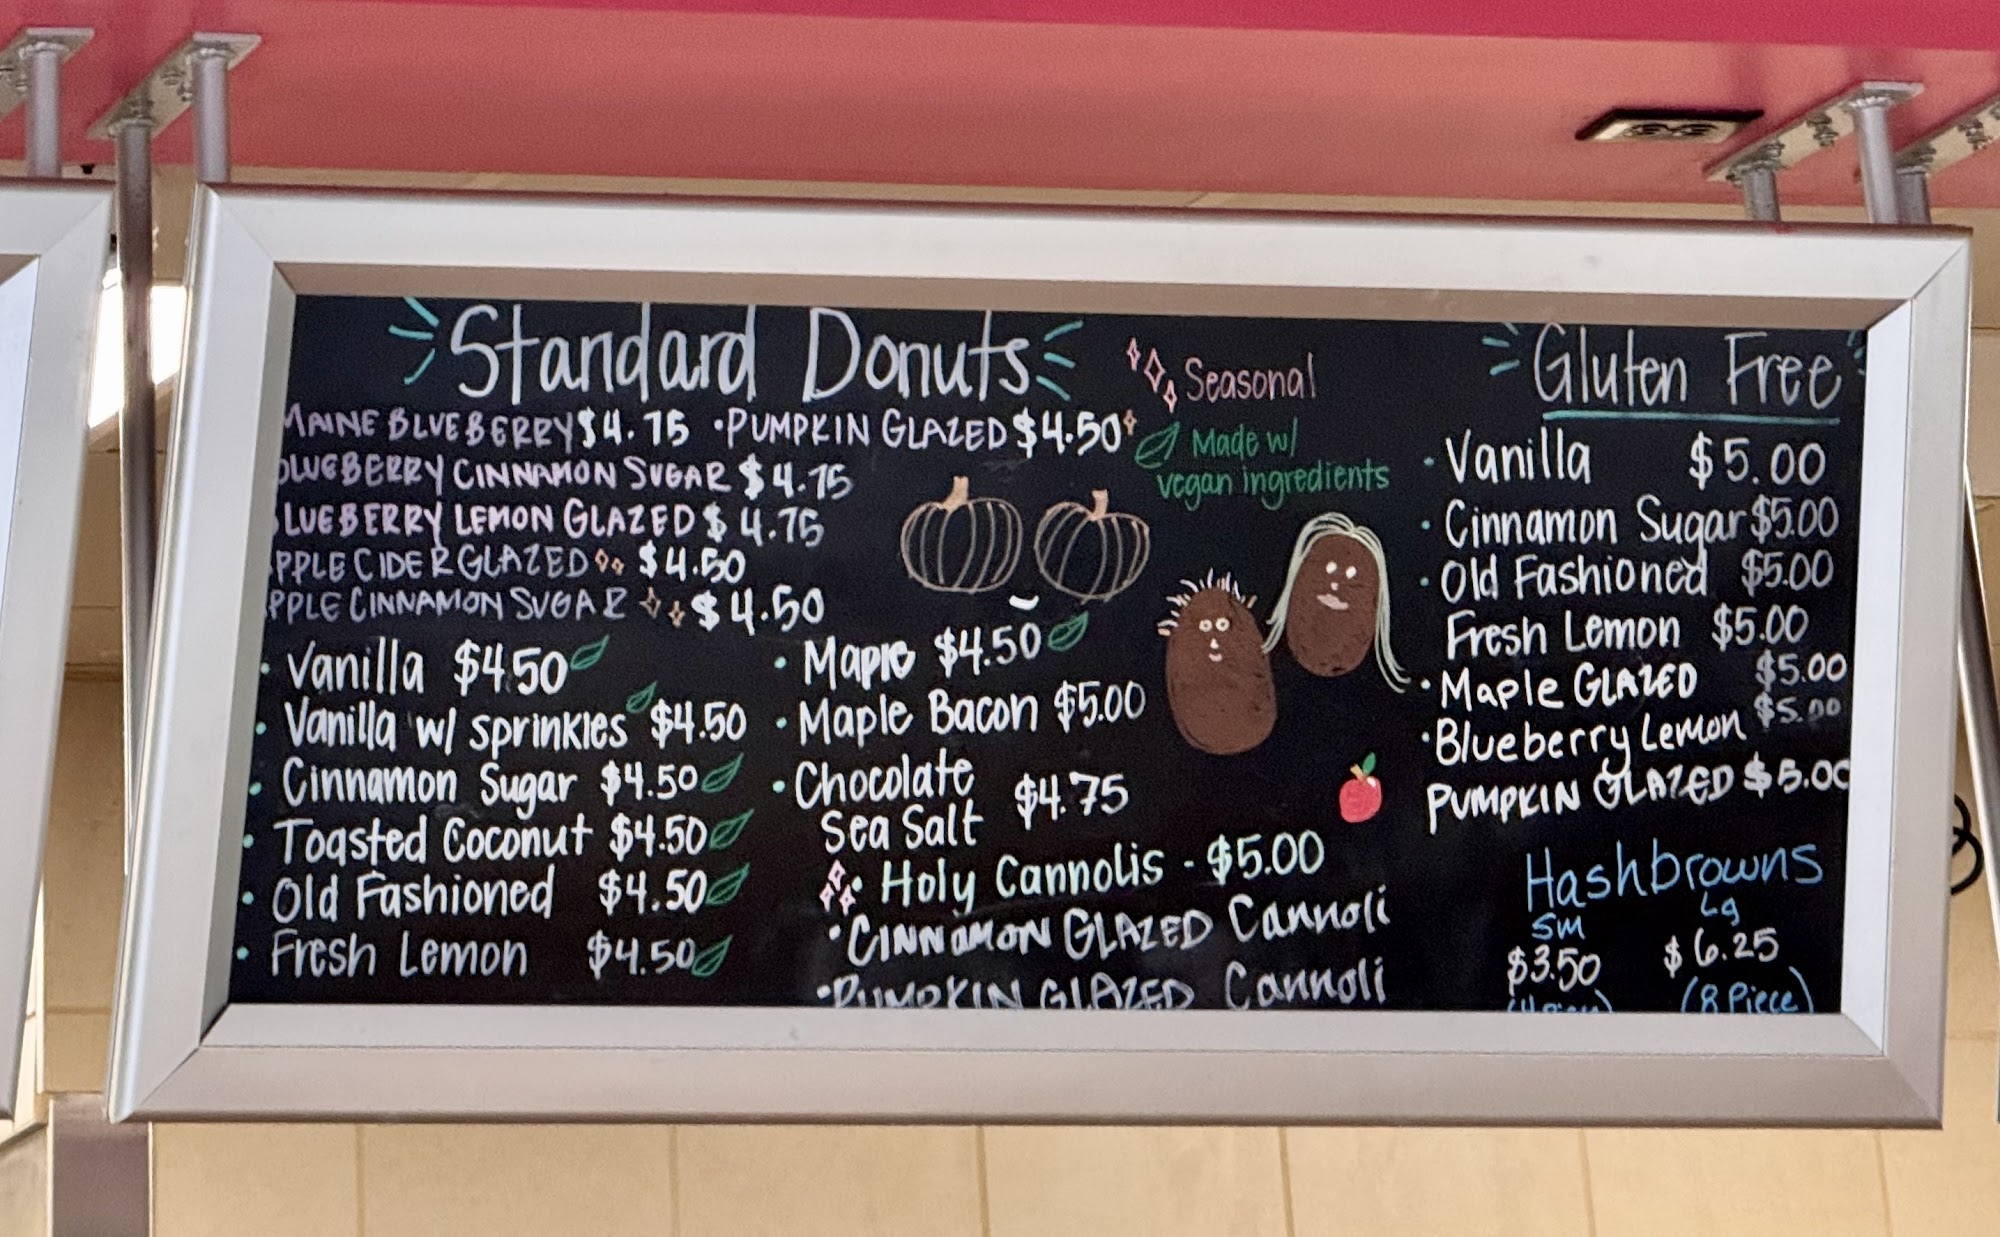 Standard Donuts
MAINE BLUEBERRY $4.75
BLUEBERRY CINNAMON SUGAR $4.75
BLUEBERRY LEMON GLAZED $4.75
APPLE CIDER GLAZED $4.50
APPLE CINNAMON SUGAR $4.50
• PUMPKIN GLAZED $4.50
Seasonal
Made w/
vegan ingredients
• Vanilla $4.50
• Vanilla w/ sprinkles $4.50
• Cinnamon Sugar $4.50
• Toasted Coconut $4.50
• Old Fashioned $4.50
• Fresh Lemon $4.50
• Maple $4.50
• Maple Bacon $5.00
• Chocolate
Sea Salt $4.75
• Holy Cannolis - $5.00
• CINNAMON GLAZED Cannoli
• PUMPKIN GLAZED Cannoli
Gluten Free
• Vanilla $5.00
• Cinnamon Sugar $5.00
• Old Fashioned $5.00
Fresh Lemon $5.00
• Maple GLAZED $5.00
• Blueberry Lemon $5.00
PUMPKIN GLAZED $5.00
Hashbrowns
Sm Lg
$3.50 $6.25
(8 Piece)